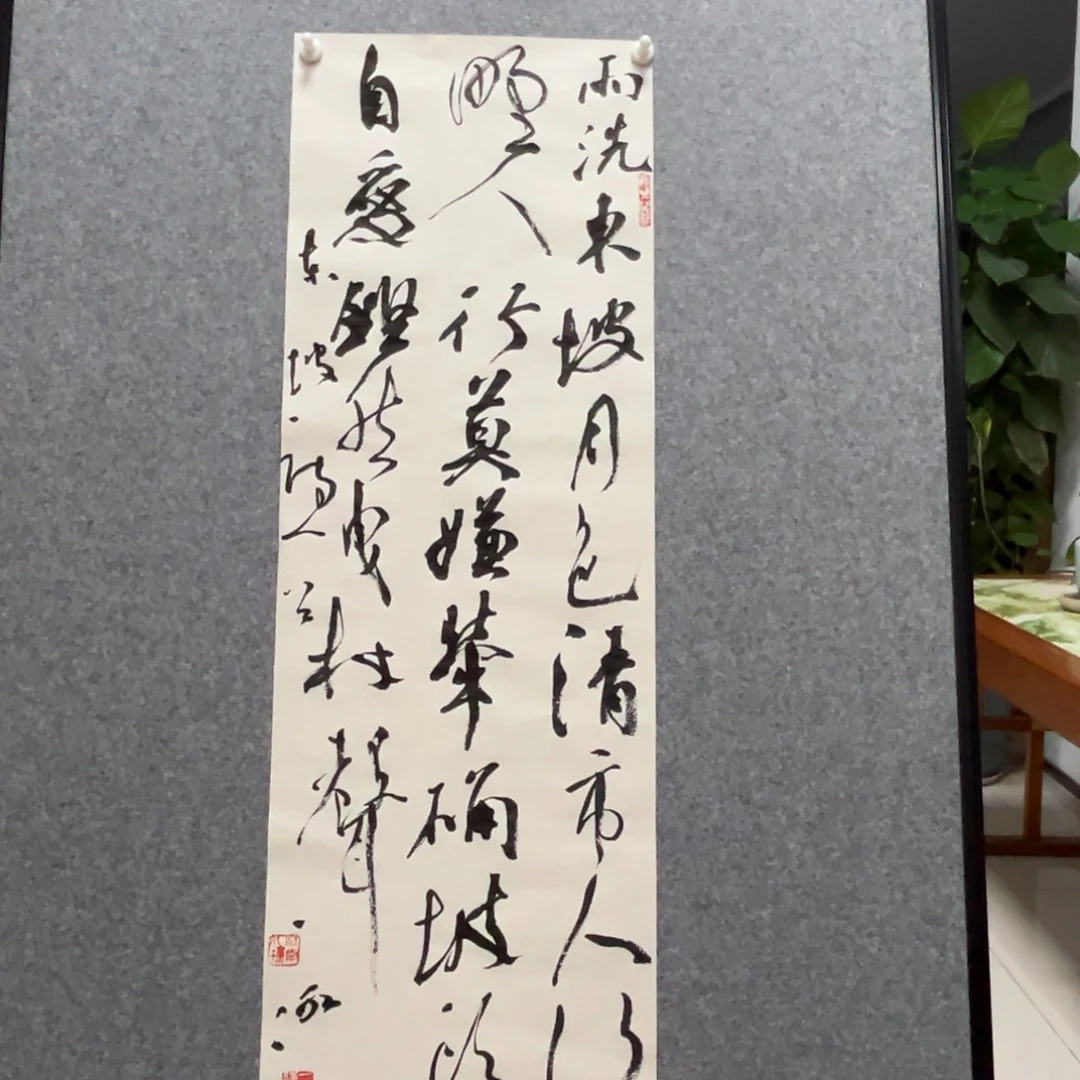 雨洗東坡月色清市人行
野人行莫嫌犖确坡頭
自愛鏗然曳杖聲
东坡